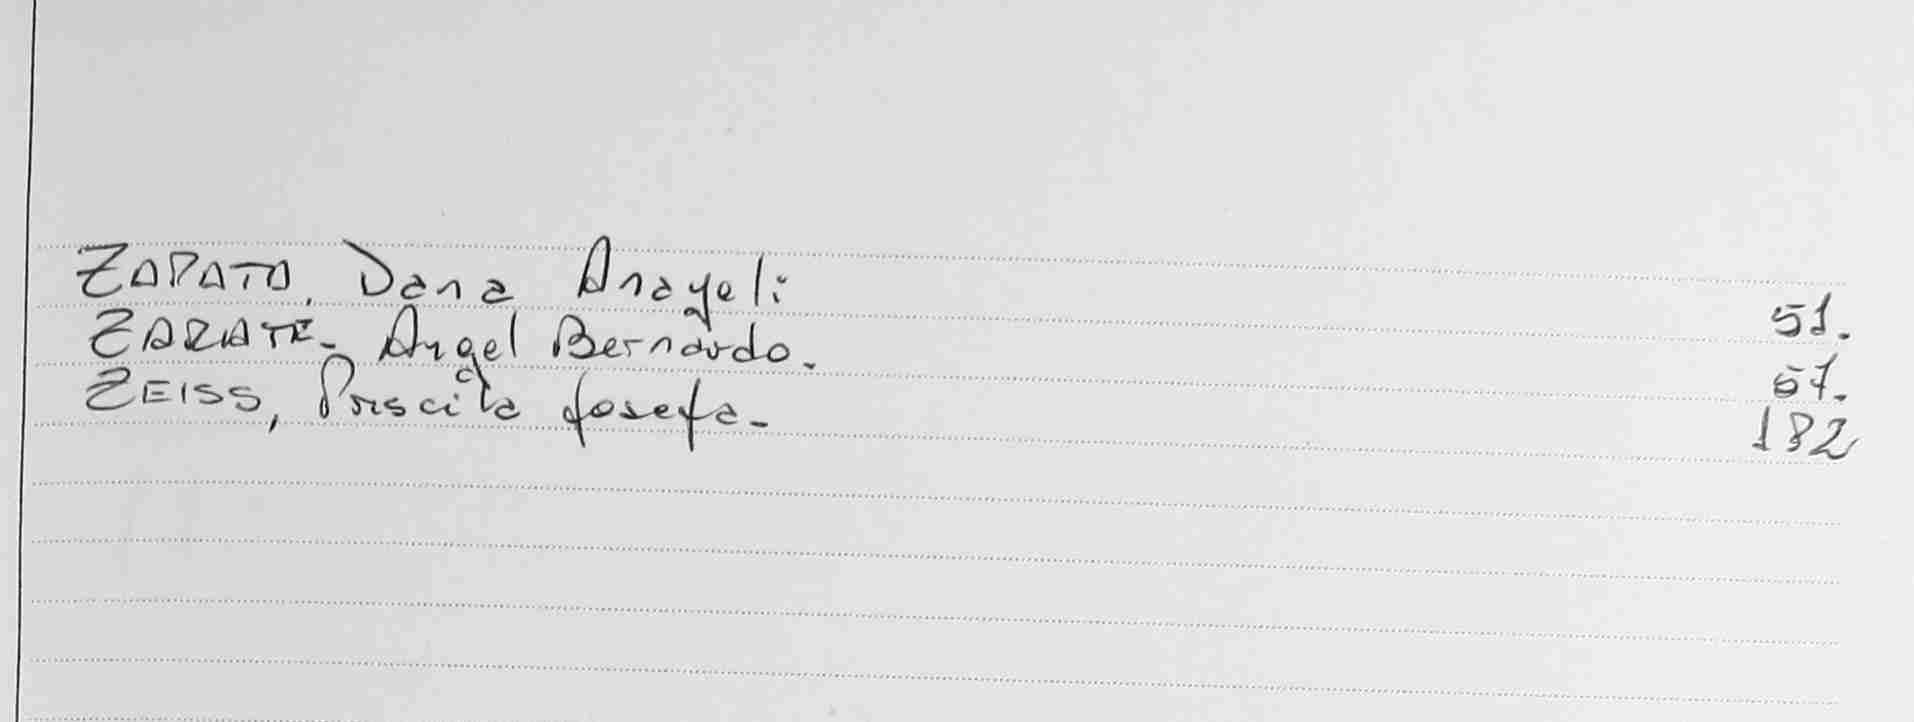 ZAPATA, Dana Anayeli 51.
ZARATE- Angel Bernardo. 57.
ZEISS, Priscila Josefa- 182